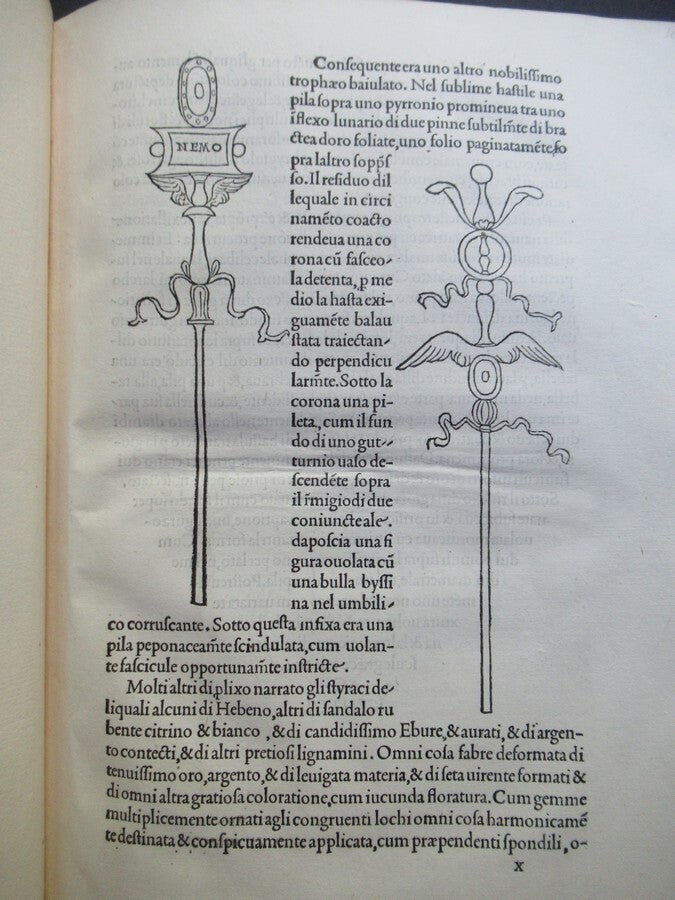 NEMO
Consequente era uno altro nobilissimo
trophæo baiulato. Nel sublime hastile una
pila sopra uno pyrronio promineua tra uno
īflexo lunario di due pinne subtilm̄te di bra
ctea doro foliate, uno folio paginatamēte, so
pra laltro sopp̄s
so. Il residuo dil
lequale in circi
namēto coacto
rendeua una co
rona cū fasceo-
la detenta, ꝑ me
dio la hasta exi-
guamēte balau
stata traiectan-
do perpendicu
larm̄te. Sotto la
corona una pi-
leta, cum il fun
do di uno gut-
turnio uaso de-
scendēte sopra
il r̄migio di due
coniuncte ale.
daposcia una fi
gura ouolata cū
una bulla byssi
na nel umbili-
co corruscante. Sotto questa infixa era una
pila peponaceam̄te scindulata, cum uolan-
te fascicule opportunam̄te instricte.
Molti altri di ꝓlixo narrato gli styraci de-
liquali alcuni di Hebeno, altri di sandalo ru
bente citrino & bianco, & di candidissimo Ebure, & aurati, & di argen-
to contecti, & di altri pretiosi lignamini. Omni cosa fabre deformata di
tenuissimo oro, argento, & di leuigata materia, & di seta uirente formati &
di omni altra gratiosa coloratione, cum iucunda floratura. Cum gemme
multiplicemente ornati agli congruenti lochi omni cosa harmonicamē
te destinata & conspicuamente applicata, cum præpendenti spondili, o-
x